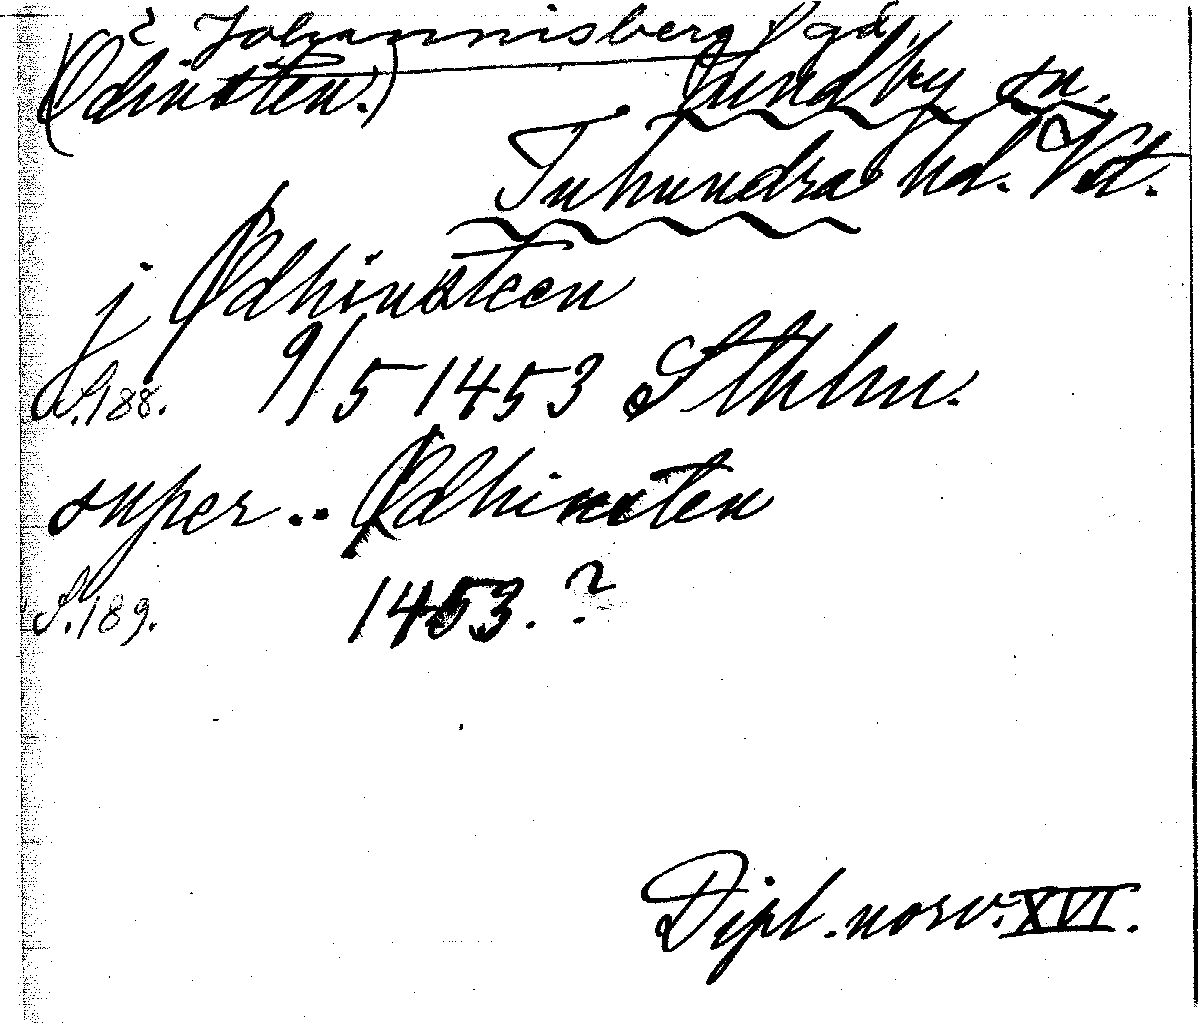 ? Johannisberg lgd,
(Ødinsten.) Lundby sn.
Tuhundra hd. Vst.
j Ødhinsteen
S.188. 9/5 1453 Sthlm.
super .. Ødhinsten
S.189. 1453. ?
Dipl. norv. XVI.